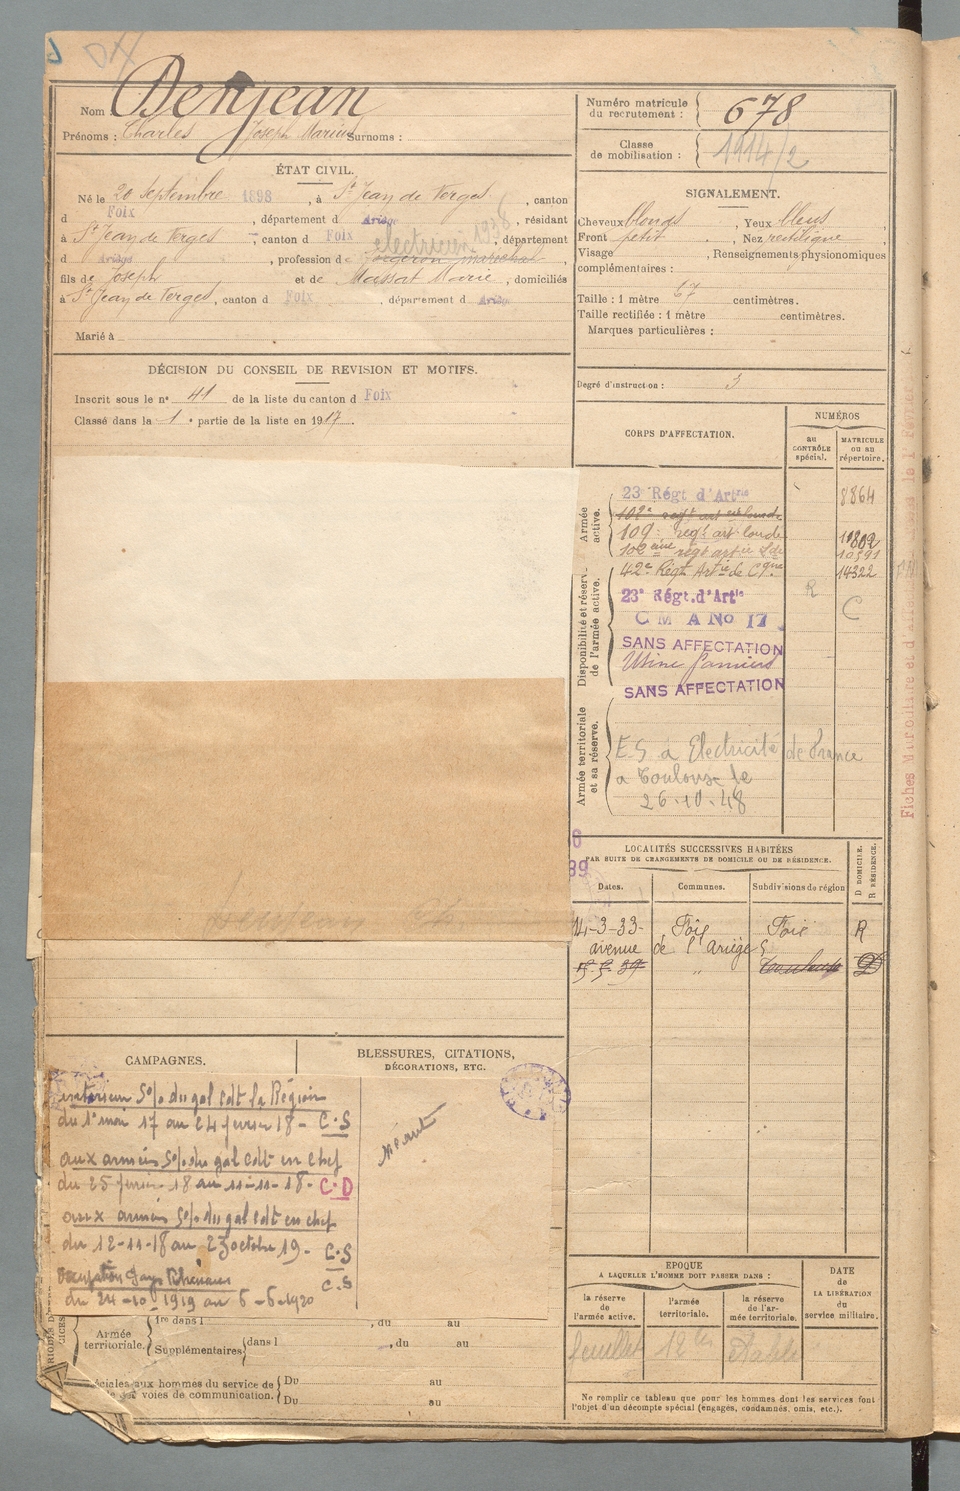 Nom : Denjean
Prénoms : Charles Joseph Marius Surnoms :
Numéro matricule du recrutement : 678
Classe de mobilisation : 1914/2
ÉTAT CIVIL.
Né le 20 Septembre 1898, à St Jean de Verges, canton
d Foix, département d Ariège, résidant
à St Jean de Verges, canton d Foix, département
électricien 1938
d Ariège, profession de forgeron maréchal
fils de Joseph et de Massat Marie, domiciliés
à St Jean de Verges, canton d Foix, département d Ariège
Marié à
SIGNALEMENT.
Cheveux blonds, Yeux bleus,
Front petit, Nez rectiligne
Visage, Renseignements physionomiques
complémentaires :
Taille : 1 mètre 67 centimètres.
Taille rectifiée : 1 mètre centimètres.
Marques particulières :
Degré d'instruction : 3
DÉCISION DU CONSEIL DE REVISION ET MOTIFS.
Inscrit sous le n° 41 de la liste du canton d Foix
Classé dans la 1e partie de la liste en 1917.
CORPS D'AFFECTATION.
NUMÉROS
au CONTRÔLE spécial.
MATRICULE ou au répertoire.
Armée active.
23 Régt d'Artie 8864
102e regt art lourde
109e regt art lourde
102eme regt artie Lde 10391
42e Régt Artie de Cgne 14322
Disponibilité et réserve de l'armée active.
R
23e Régt. d'Artie
C
C M A No 17
SANS AFFECTATION
Usine Pamiers
SANS AFFECTATION
Armée territoriale et sa réserve.
E S à Electricité de France
a Toulouse le
26-10-48
LOCALITÉS SUCCESSIVES HABITÉES
PAR SUITE DE CHANGEMENTS DE DOMICILE OU DE RÉSIDENCE.
Dates. Communes. Subdivisions de région
D DOMICILE. R RÉSIDENCE.
14-3-33- Foix Foix R
avenue de l'Ariège 5
Toulouse D
CAMPAGNES.
BLESSURES, CITATIONS,
DÉCORATIONS, ETC.
S/o du gal Cdt la Région
du 1e mai 17 au 24 fevrier 18 - C.S
aux armées S/o du gal Cdt en chef
du 25 fevrier 18 au 11-11-18 - C.D
aux armées S/o du gal Cdt en chef
du 12-11-18 au 23 octobre 19 - C.S
Occupation Pays Rhénans C.S
du 24-10-1919 au 6-6-1920
Néant
Armée territoriale.
1re dans l , du au
Supplémentaires dans l , du au
éciales aux hommes du service de
voies de communication.
Du au
Du au
EPOQUE
A LAQUELLE L'HOMME DOIT PASSER DANS :
la réserve de l'armée active.
l'armée territoriale.
la réserve de l'armée territoriale.
DATE de LA LIBÉRATION du service militaire.
Ne remplir ce tableau que pour les hommes dont les services font
l'objet d'un décompte spécial (engagés, condamnés, omis, etc.).